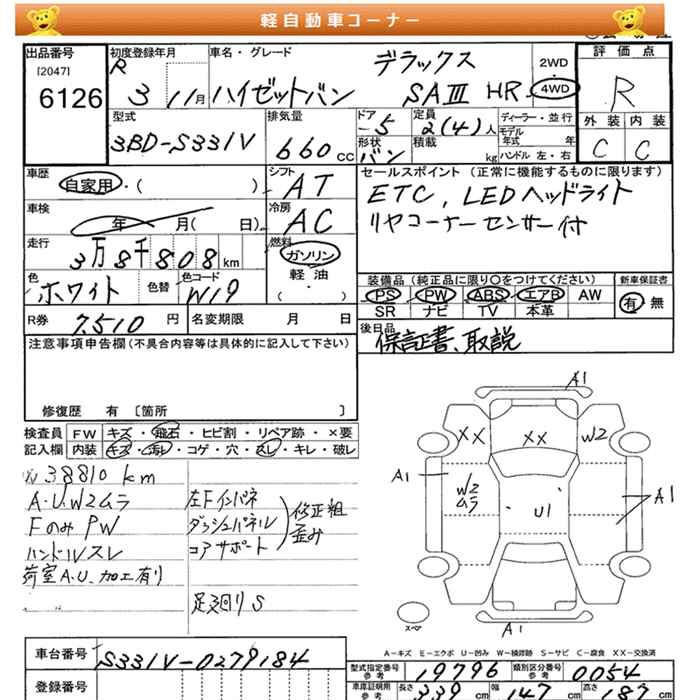 軽自動車コーナー
出品番号
[2047]
6126
初度登録年月
R 3 11月
車名・グレード
デラックス
ハイゼットバン SAⅢ HR
2WD
4WD
評価点
R
外装 内装
C C
型式
3BD-S331V
排気量
660 CC
ドア
-5
形状
バン
定員
2(4)人
積載
kg
ディーラー・並行
モデル年式 年
ハンドル 左・右
車歴
自家用・( )
シフト
AT
セールスポイント (正常に機能するものに限ります)
ETC, LEDヘッドライト
リヤコーナーセンサー付
車検
年 月( 日)
冷房
AC
走行
3万8千808km
燃料
ガソリン
軽油
( ・ )
色
ホワイト
色替
色コード
W19
装備品 (純正品に限り○をつけてください)
PS PW ABS エアB AW
SR ナビ TV 本革
新車保証書
有 無
R券 7,510 円
名変期限 月 日
後日品
保証書、取説
注意事項申告欄(不具合内容等は具体的に記入して下さい)
修復歴 有 [箇所 ]
検査員記入欄
FW キズ・飛石・ヒビ割・リペア跡・×要
内装 キズ・汚れ・コゲ・穴・スレ・キレ・破レ
38810 km
A・U、W2ムラ
Fのみ PW
ハンドルスレ
荷室A・U、加工有り
左Fインパネ
ダッシュパネル
コアサポート
修正粗
歪み
足廻りS
A1
XX
XX
W2
A1
W2
ムラ
U1
A1
スペア
A1
A-キズ E-エクボ U-凹み W-補修跡 S-サビ C-腐食 XX-交換済
車台番号
S331V-0279184
登録番号
型式指定番号
参考
19796
類別区分番号
参考
0054
車庫証明用
参考
長さ 339 cm
幅 147 cm
高さ 187 cm